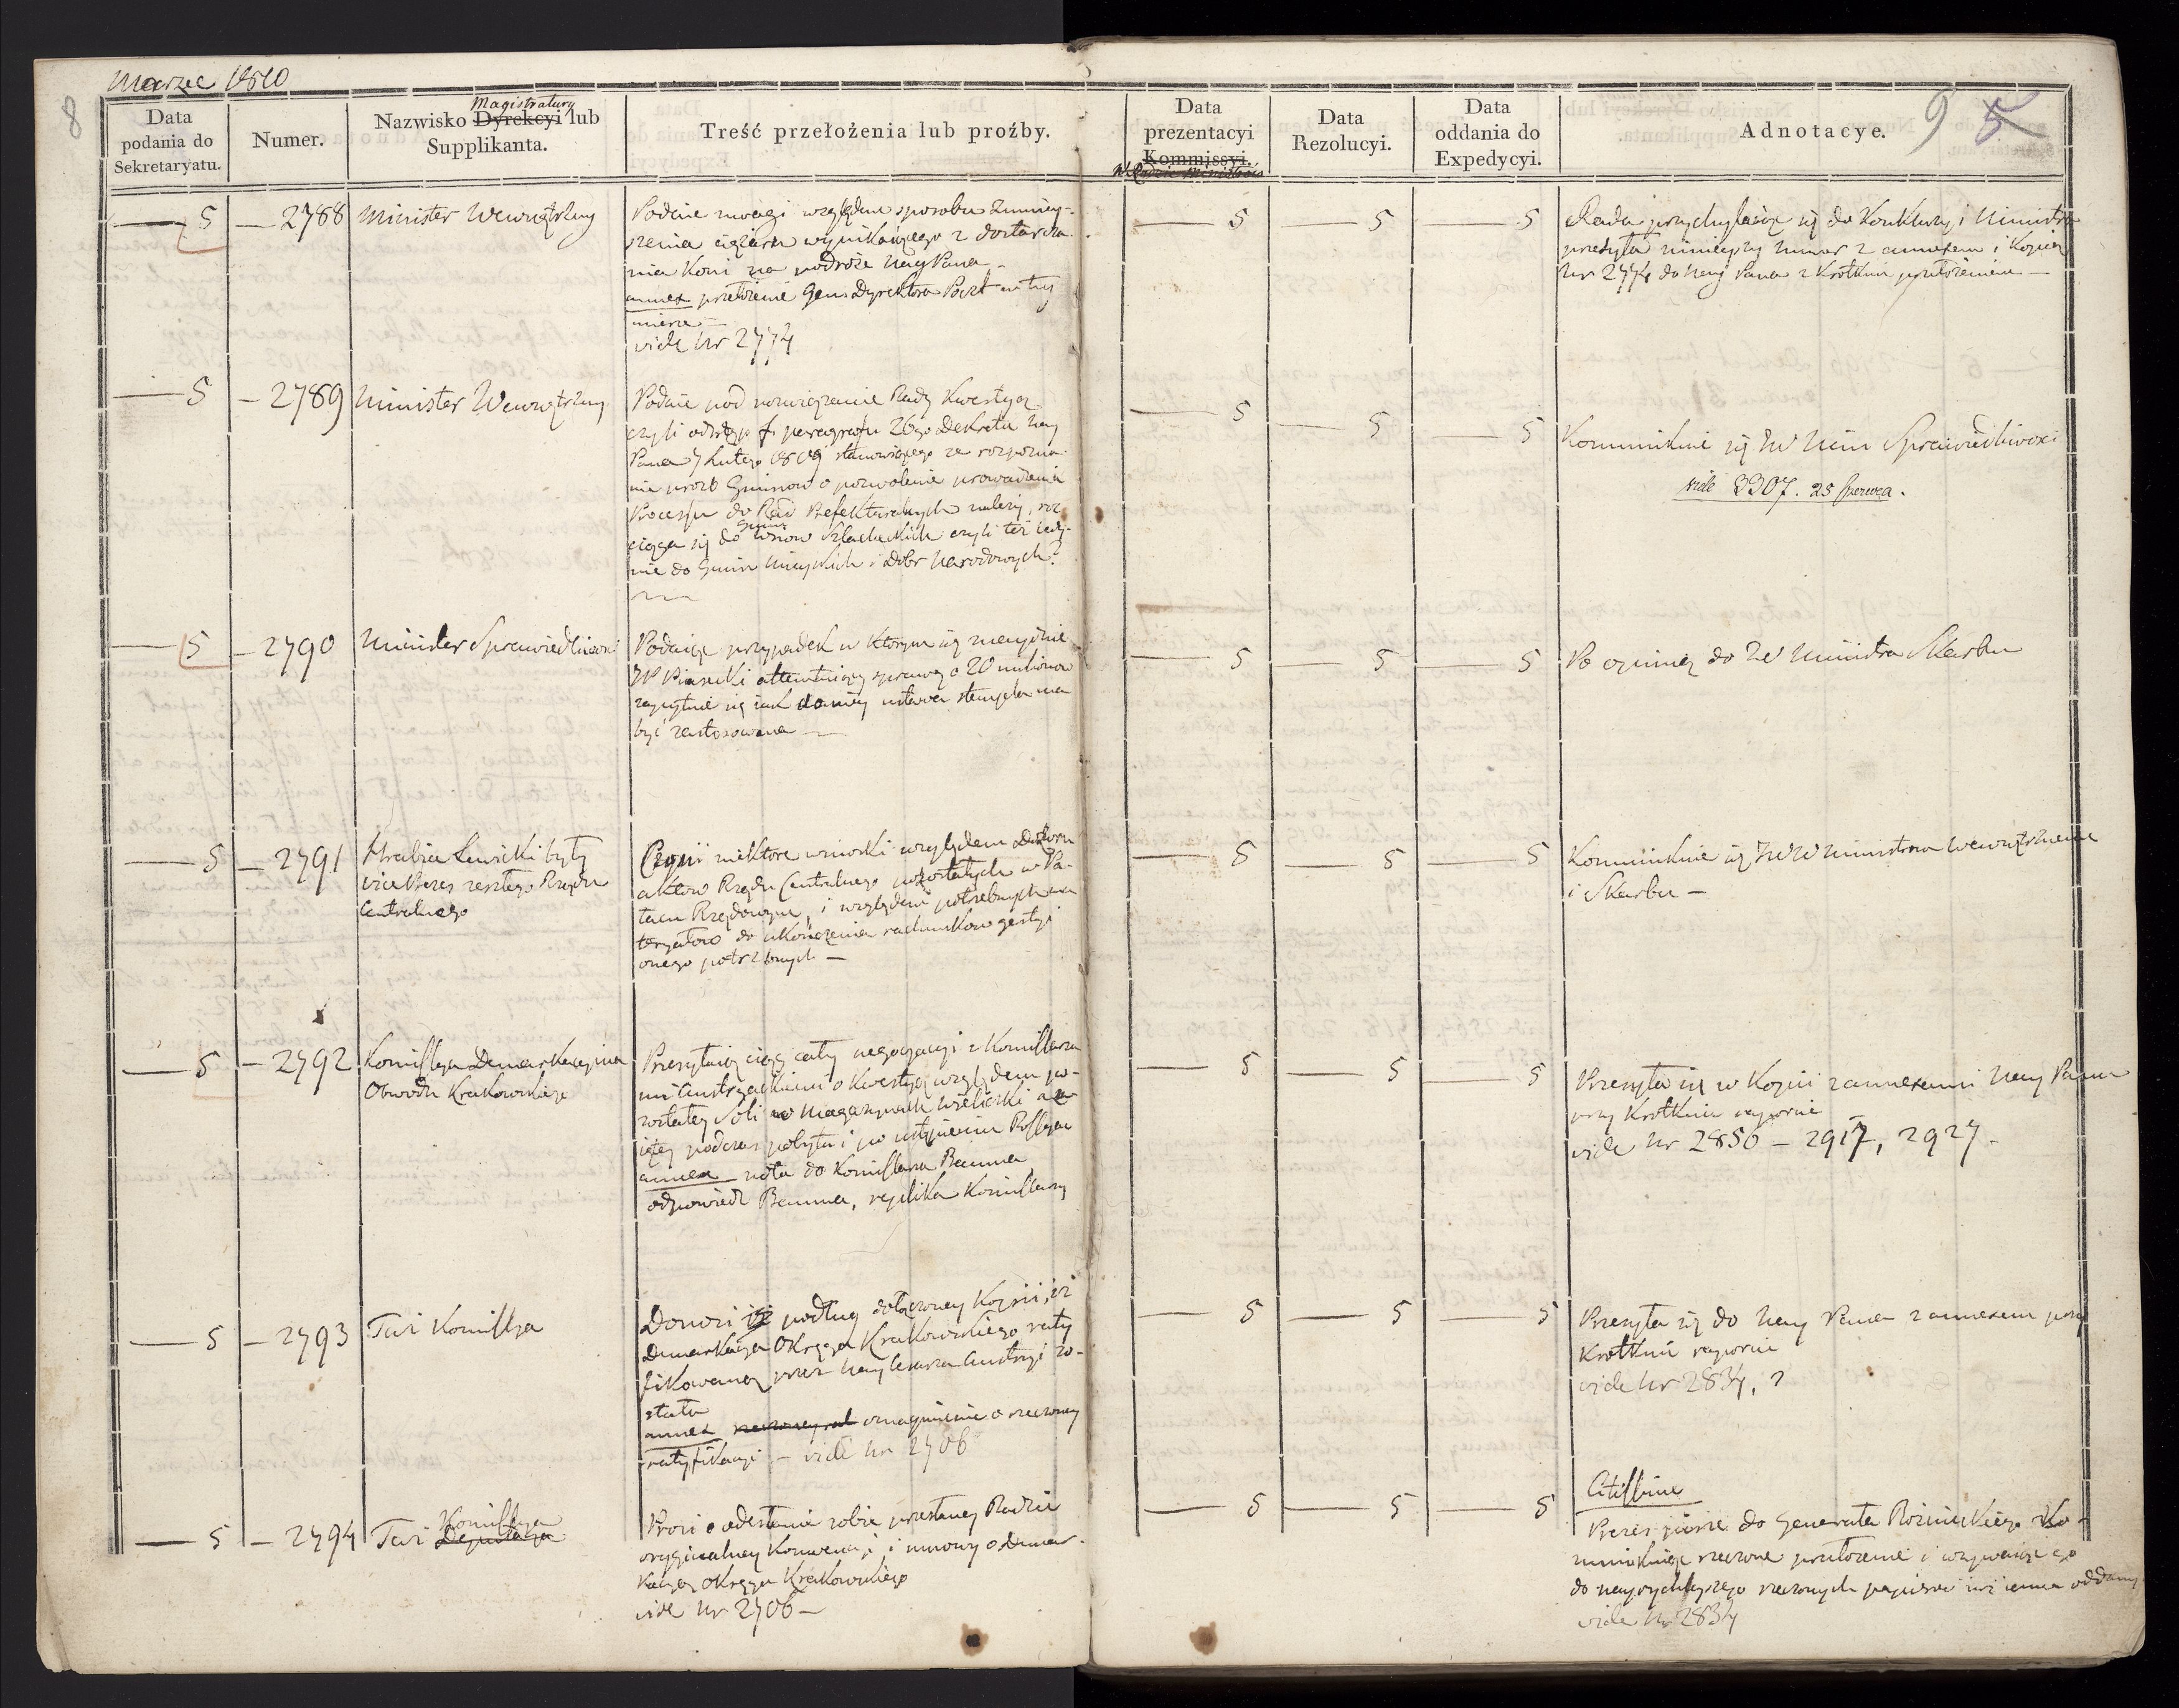 Marzec 1810
8
9 5
Data podania do Sekretaryatu.
Numer.
Nazwisko Dyrekcyi Magistratury lub Supplikanta.
Treść przełożenia lub proźby.
Data prezentacyi Kommissyi. w Radzie Ministrów
Data Rezolucyi.
Data oddania do Expedycyi.
Adnotacye.
— 5 — 2788 Minister Wewnętrzny
Podaie uwagi względem sposobu zmniey-
szenia ciężaru wynikaiącego z dostarcza-
nia koni na podróże Nay Pana —
annex przełożenie Gen: Dyrektora Poczt w tey
mierze —
vide Nr 2774
— 5 — 5 — 5
Rada przychylaiąc się do Konkluzyi Ministra
przesyła ninieyszy numer z annexem i Kopią
Nr 2774 do Nay Pana z krótkim przełożeniem —
— 5 — 2789 Minister Wewnętrzny
Podaie pod rozwiązanie Rady Kwestyą
czyli osnowa f. paragrafu 26go Dekretu Nay
Pana 7 Lutego 1809 stanowiącego że rozpozna-
nie prozb Gminow o pozwolenie prowadzenia
Processu do Rad Prefekturalnych należy, roz
ciąga się do Gmin wsiow Szlacheckich czyli też iedy-
nie do Gmin Mieyskich i Dobr Narodowych?
— 5 — 5 — 5
Kommunikuie się JW Min Sprawiedliwości
vide 3307. 25 Czerwca.
— 5 — 2790 Minister Sprawiedliwości
Podaiąc przypadek w którym się znayduie
JP Piasecki attentuiący sprawę o 20 milionów
zapytuie się iak daniey ustawa stempla ma
być zastosowana —
— 5 — 5 — 5
Po opinią do JW Ministra Skarbu
— 5 — 2791 Hrabia Lewicki były
vice Prezes zeszłego Rządu
Centralnego
Czyni niektóre wnioski względem Dozoru
aktów Rządu Centralnego pozostałych w Pa-
łacu Rządowym, i względem potrzebnych ma
teryałow do ukończenia rachunkow gestyi
onego potrzebnych —
— 5 — 5 — 5
Kommunikuie się JWW Ministrom Wewnętrznemu
i Skarbu —
— 5 — 2792 Komissya Demarkacyina
Obwodu Krakowskiego
Przesyłaiąc ciąg cały negocyacyi z Komissarza
mi Austryackiemi o Kwestyą względem po-
zostałey Soli w Magazynach Wieliczki a w
iętey podczas pobytu i po ustąpieniu Rossyan
annex nota do Komissarza Baumа
odpowiedź Bauma, replika Komissarzy
— 5 — 5 — 5
Przesyła się w Kopii z annexami Nay Panu
przy krótkim raporcie
vide Nr 2850 — 2917, 2927 —
— 5 — 2793 Taż Komissya
Donosi iż podług dołączoney Kopii, iż
Demarkacya Okręgu Krakowskiego raty
fikowaną przez Nay Cesarza Austryi zo-
stała
annex oznaymienie o rzeczoney
ratyfikacyi — vide Nr 2706
— 5 — 5 — 5
Przesyła się do Nay Pana z annexem przy
krótkim raporcie
vide Nr 2834, ?
— 5 — 2794 Taż Deputacya Komissya
Prosi o odesłanie sobie przesłaney Radzie
oryginalney Konwencyi i umowy o Demar-
kacyą Okręgu Krakowskiego
vide Nr 2706 —
— 5 — 5 — 5
Citissime
Prezes pisze do Generała Rożnieckiego Ko-
munikuiąc rzeczone przełożenie i wzywaiąc go
do nayrychleyszego rzeczonych papierów iuż iemu oddany
vide Nr 2834